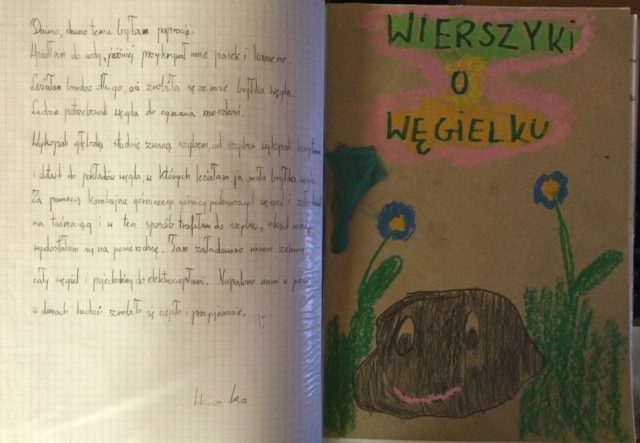 Dawno, dawno temu byłam paprocią.
Upadłam do wody, później przykrył mnie piasek i kamienie.
Leżałam bardzo długo, aż zrobiła się ze mnie bryłka węgla.
Ludzie potrzebowali węgla do ogrzania mieszkań.
Wykopali głęboką studnię zwaną szybem, od szybu wykopali korytarz
i dotarli do pokładów węgla, w których leżałam ja mała bryłka węgla.
Za pomocą kombajna górniczego górnicy węgiel i
na taśmociąg i w ten sposób trafiłam do szybu, skąd windą
wydostałam się na powierzchnię. Tam załadowano razem ze mną
cały węgiel i pojechaliśmy do elektrociepłowni. Napalono nami w piecu
w domach ludzi zrobiło się ciepło i przyjemnie.
WIERSZYKI
O
WĘGIELKU